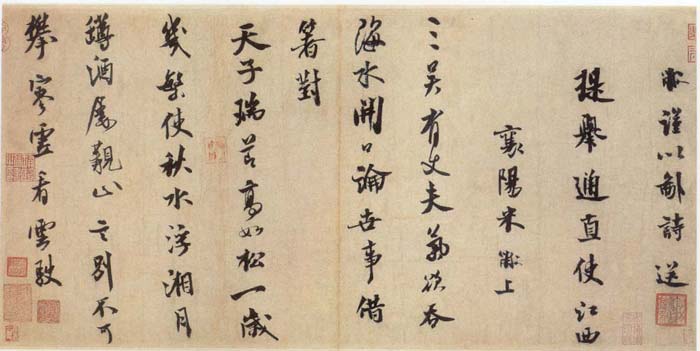 黻謹以鄙詩送
提舉通直使江西
襄陽米黻上
三吳有丈夫氣欲吞
海水開口論世事借
箸對
天子瑞節高如松一歲
幾繁使秋水浮湘月
罇酒屢覯止言別不可
攀寒雲看雲駃